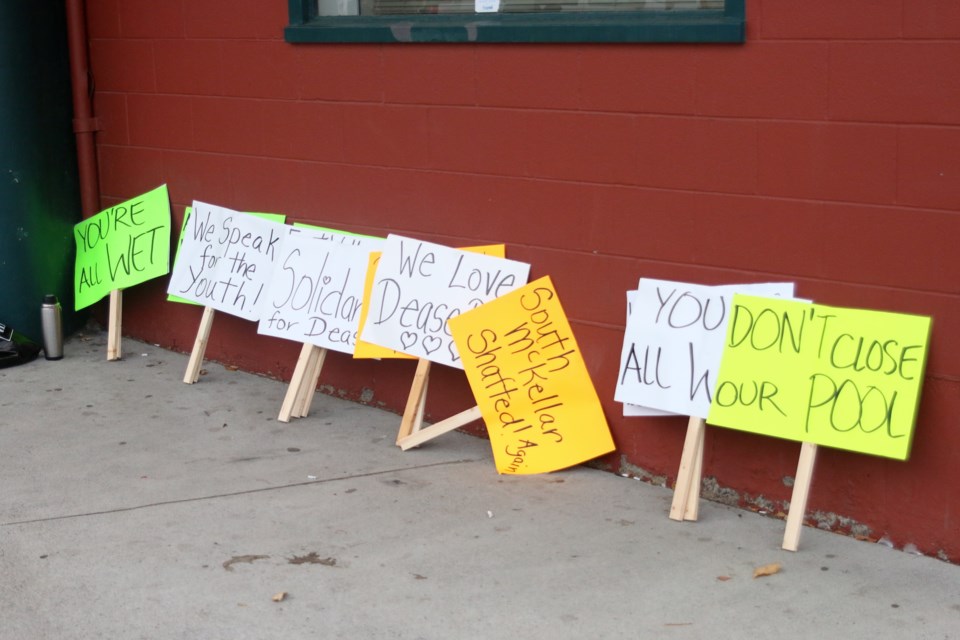 YOU'RE
ALL WET
We Speak
for the
Youth!
Solidar
for Deas
We Love
Dease
South
McKellar
Shafted! Again
YOU
ALL W
DON'T CLOSE
OUR POOL